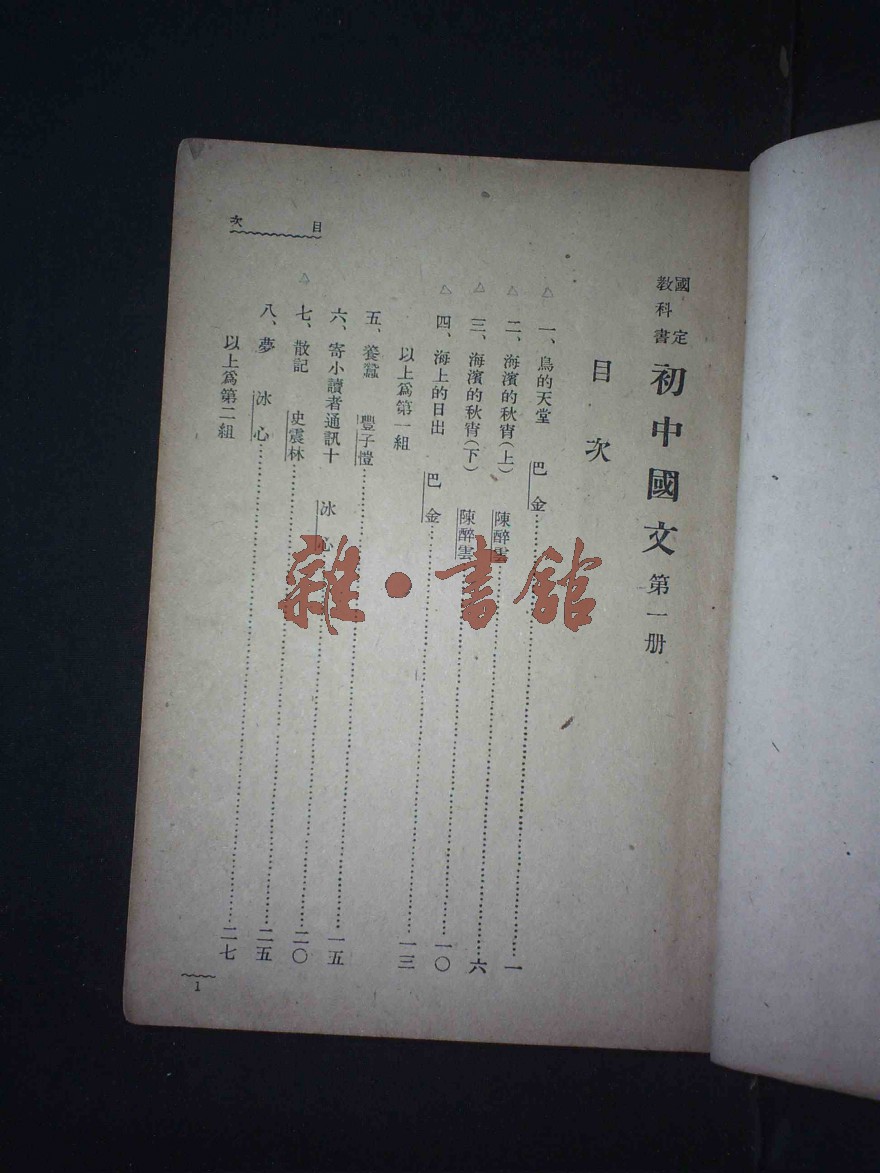 國定教科書 初中國文 第一册
目次
△ 一、鳥的天堂 巴金……一
△ 二、海濱的秋宵(上) 陳醉雲……六
△ 三、海濱的秋宵(下) 陳醉雲……一〇
△ 四、海上的日出 巴金……一三
以上爲第一組
五、養蠶 豐子愷……一五
六、寄小讀者通訊十 冰心……二〇
△ 七、散記 史震林……二五
八、夢 冰心……二七
以上爲第二組
目次
1
雜·書館